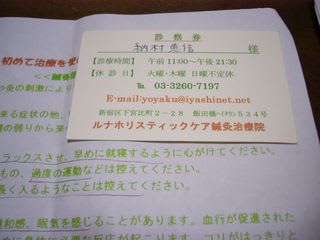 診 察 券
納村 恵信 様
【診療時間】 午前 11:00～午後 21:30
【休 診 日】 火曜･木曜 日曜不定休
℡ 03-3260-7197
E-mail:yoyaku@iyashinet.net
新宿区下宮比町２－２８ 飯田橋ハイタウン５３４号
ルナホリスティックケア鍼灸治療院
初めて治療を
<<鍼灸
の刺激により
来る症状の他、
の弱りから来
ラックスさせ、早めに就寝するように心がけてください。
もの、過度の運動などは控えてください。
長く入るようなことは控えてください。
和感、眠気を感じることがあります。血行が促進された